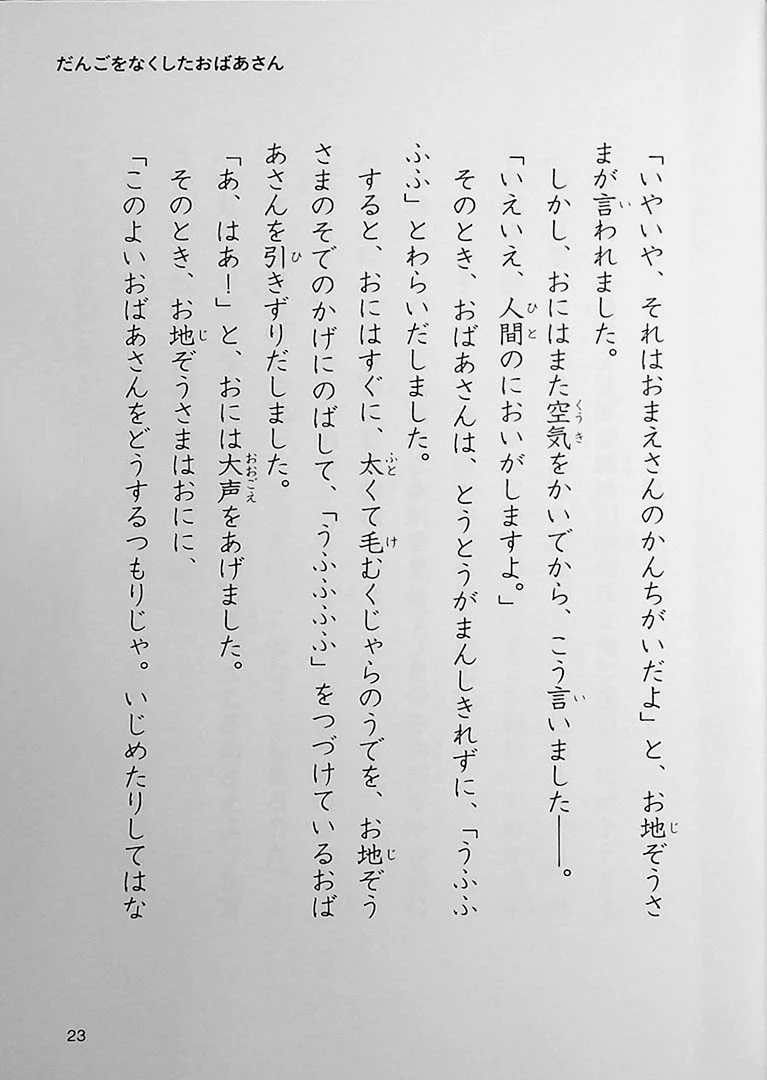 だんごをなくしたおばあさん
「いやいや、それはおまえさんのかんちがいだよ」と、お地ぞうさ
まが言われました。
しかし、おにはまた空気をかいでから、こう言いました――。
「いえいえ、人間のにおいがしますよ。」
そのとき、おばあさんは、とうとうがまんしきれずに、「うふふ
ふふ」とわらいだしました。
すると、おにはすぐに、太くて毛むくじゃらのうでを、お地ぞう
さまのそでのかげにのばして、「うふふふふ」をつづけているおば
あさんを引きずりだしました。
「あ、はあ！」と、おには大声をあげました。
そのとき、お地ぞうさまはおにに、
「このよいおばあさんをどうするつもりじゃ。いじめたりしてはな
23